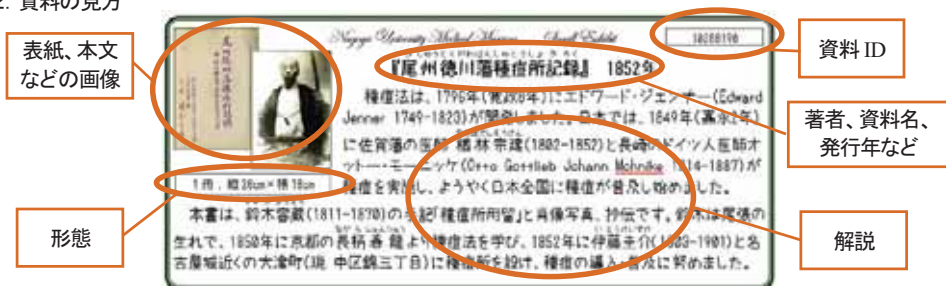 2. 資料の見方
表紙、本文
などの画像
資料 ID
著者、資料名、
発行年など
形態
解説
Nagoya University Medical Museum Small Exhibit
10288198
『尾州徳川藩種痘所記録』 1852年
種痘法は、1796年(寛政8年)にエドワード・ジェンナー(Edward
Jenner 1749-1823)が開発しました。日本では、1849年(嘉永2年)
に佐賀藩の医師 楢林宗建(1802-1852)と長崎のドイツ人医師オ
ットー・モーニッケ(Otto Gottlieb Johann Mohnike 1814-1887)が
種痘を実施し、ようやく日本全国に種痘が普及し始めました。
1冊 , 縦26cm×横18cm
本書は、鈴木容蔵(1811-1870)の手記「種痘所用留」と肖像写真、抄伝です。鈴木は尾張の
生れで、1850年に京都の長柄春龍より種痘法を学び、1852年に伊藤圭介(1803-1901)と名
古屋城近くの大津町(現 中区錦三丁目)に種痘所を設け、種痘の導入・普及に努めました。